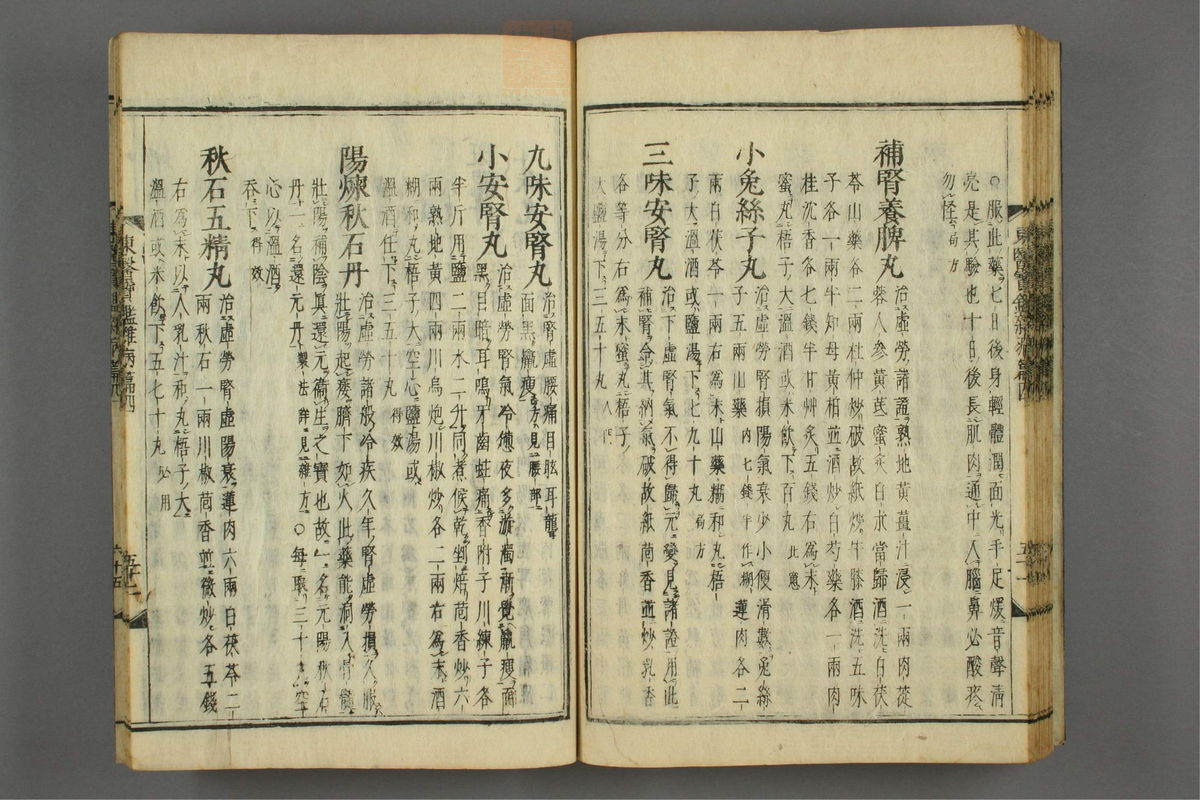 ○服此藥七日後身輕體潤面光手足煖音聲淸
亮是其驗也十日後長肌肉通中入腦鼻必酸疼
勿怪局方
補腎養脾丸 治虛勞諸證熟地黃薑汁浸一兩肉蓯
蓉人參黃芪蜜炙白朮當歸酒洗白茯
苓山藥各二兩杜仲炒破故紙炒牛膝酒洗五味
子各一兩半知母黃栢並酒炒白芍藥各一兩肉
桂沈香各七錢半甘艸炙五錢右爲末
蜜丸梧子大溫酒或米飮下百丸
小兔絲子丸 治虛勞腎損陽氣衰少小便滑數兔絲
子五兩山藥二兩內七錢半作糊蓮肉各二
兩白茯苓一兩右爲末山藥糊和丸梧
子大溫酒或鹽湯下七九十丸局方
三味安腎丸 治下虛腎氣不得歸元變見諸證用此
補腎令其納氣破故紙茴香並炒乳香
各等分右爲末蜜丸梧子
大鹽湯下三五十丸
九味安腎丸 治腎虛腰痛目眩耳聾
面黑羸瘦方見腰部
小安腎丸 治虛勞腎氣冷憊夜多漩濁漸覺羸瘦面
黑目暗耳鳴牙齒蛀痛香附子川練子各
半斤用鹽二兩水二升同煮候乾剉焙茴香炒六
兩熟地黃四兩川烏炮川椒炒各二兩右爲末酒
糊和丸梧子大空心鹽湯或
溫酒任下三五十丸得效
陽煉秋石丹 治虛勞諸般冷疾久年腎虛勞損久服
壯陽起痿臍下如火此藥能洞入骨髓
壯陽補陰眞還元衞生之寶也故一名元陽秋石
丹一名還元丹製法詳見雜方○每取三十丸空
心以溫酒
吞下得效
秋石五精丸 治虛勞腎虛陽衰蓮肉六兩白茯苓二
兩秋石一兩川椒茴香並微炒各五錢
右爲末以人乳汁和丸梧子大
溫酒或米飮下五七十丸必用
東醫寶鑑雜病篇四